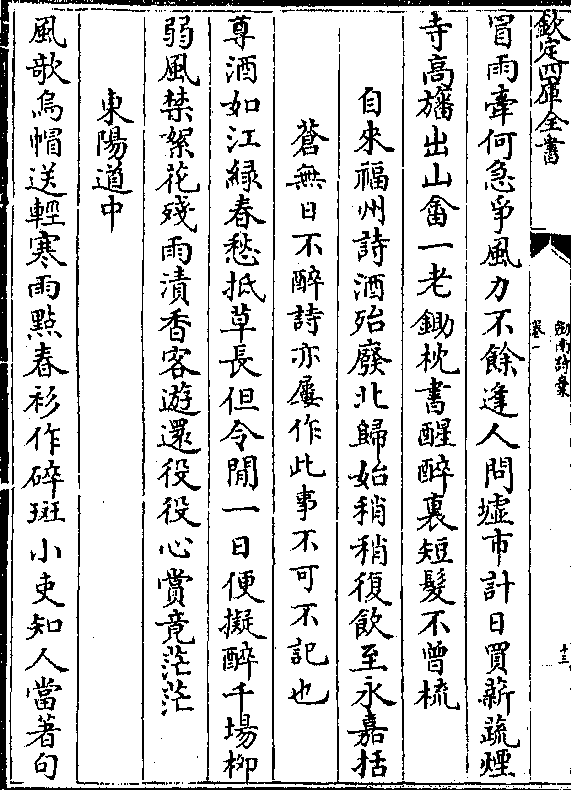 欽定四庫全書
劍南詩稾
卷一
十三
冒雨牽何急争風力不餘逢人問墟市計日買薪蔬煙
寺高旛出山畬一老鋤枕書醒醉裏短髮不曾梳
自來福州詩酒殆廢北歸始稍稍復飲至永嘉括
蒼無日不醉詩亦屢作此事不可不記也
尊酒如江緑春愁抵草長但令閒一日便擬醉千場栁
弱風禁絮花殘雨漬香客遊還役役心賞竟茫茫
東陽道中
風欹烏帽送輕寒雨點春衫作碎斑小吏知人當著句